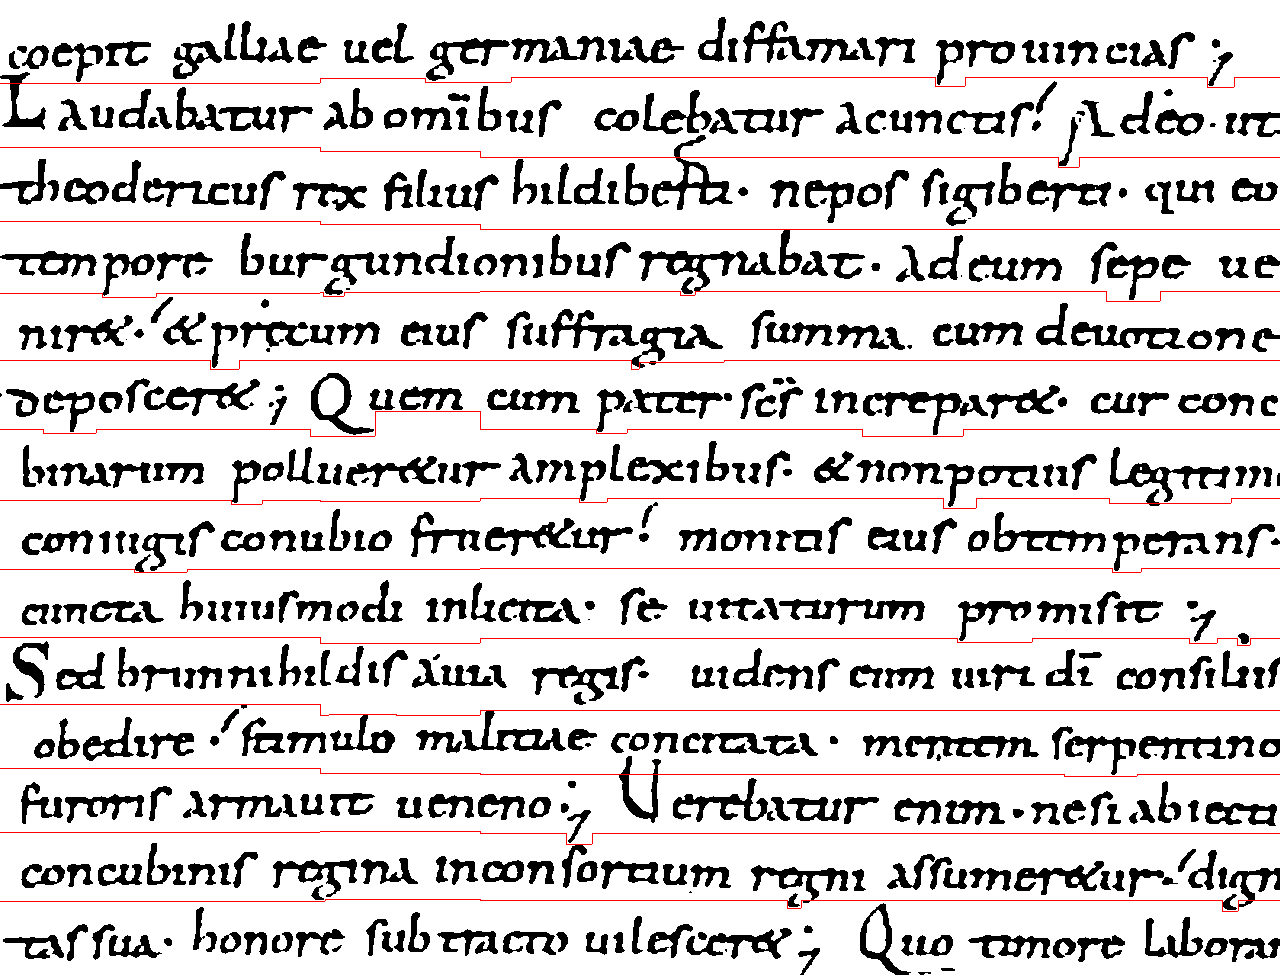 coepit galliae uel germaniae diffamari prouincias ;
Laudabatur ab omībus colebatur acunctis! Adeo · ut
theodericus rex filius hildiberti · nepos sigiberti · qui eo
tempore burgundionibus regnabat · Adeum sepe ue
nir& · & pręcum eius suffragia summa. cum deuotione
deposcer& ; Quem cum pater · scs̄ increpar& · cur conc
binarum polluer&ur amplexibus · & non potius legitimi
coniugis conubio fruer&ur! monitis eius obtemperans ·
cuncta huiusmodi inlicita · se uitaturum promisit ;
Sed brunnihildis áuia regis · uidens eum uiri dī consiliis
obedire · stimulo malitiae concitata · mentem serpentino
furoris armauit ueneno ; Uerebatur enim · ne si abiecti
concubinis regina inconsortium regni assumer&ur · dign
tas sua · honore subtracto uilescer& ; Quo timore laborar